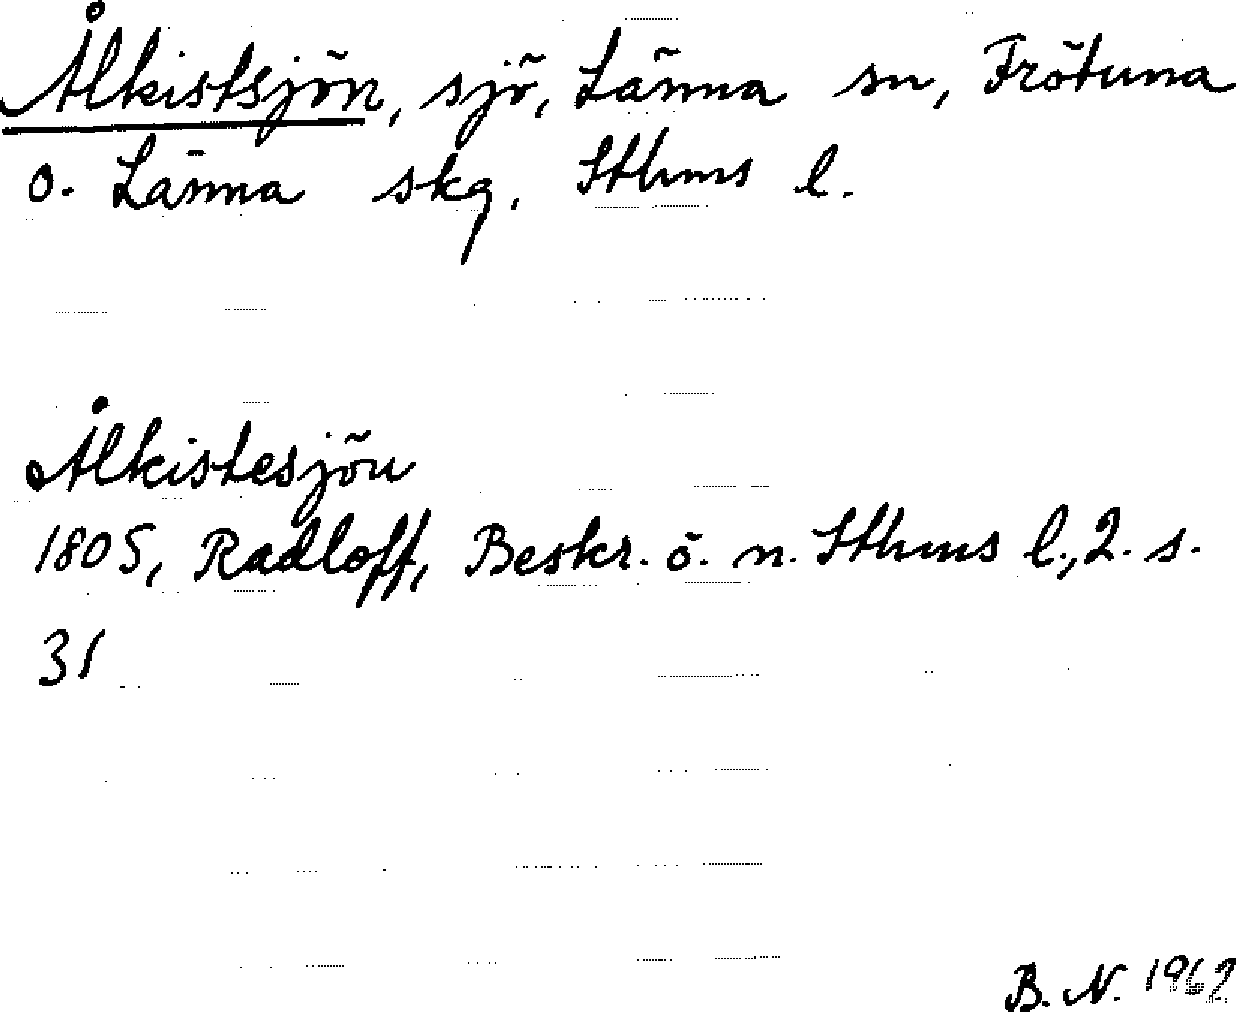 Ålkistsjön, sjö, Länna sn, Frötuna
o. Länna skg, Sthms l.
Ålkistesjön
1805, Radloff, Beskr. ö. n. Sthms l., 2. s.
31
B. N. 1962